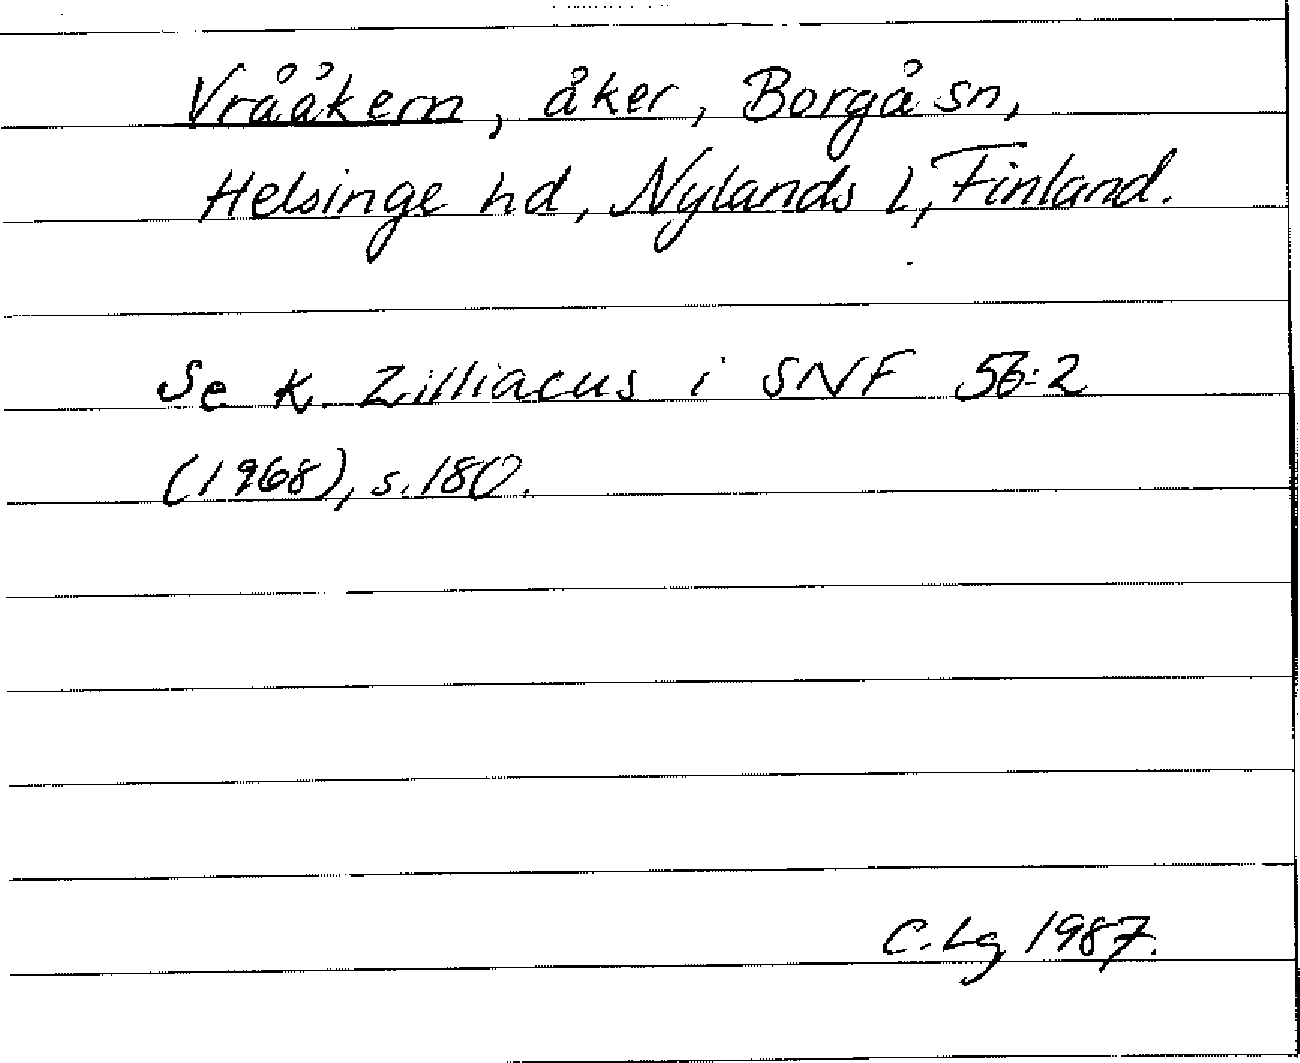 Vrååkern, åker, Borgå sn,
Helsinge hd, Nylands l, Finland.
Se K. Zilliacus i SNF 56:2
(1968), s. 180.
C. Lg 1987.